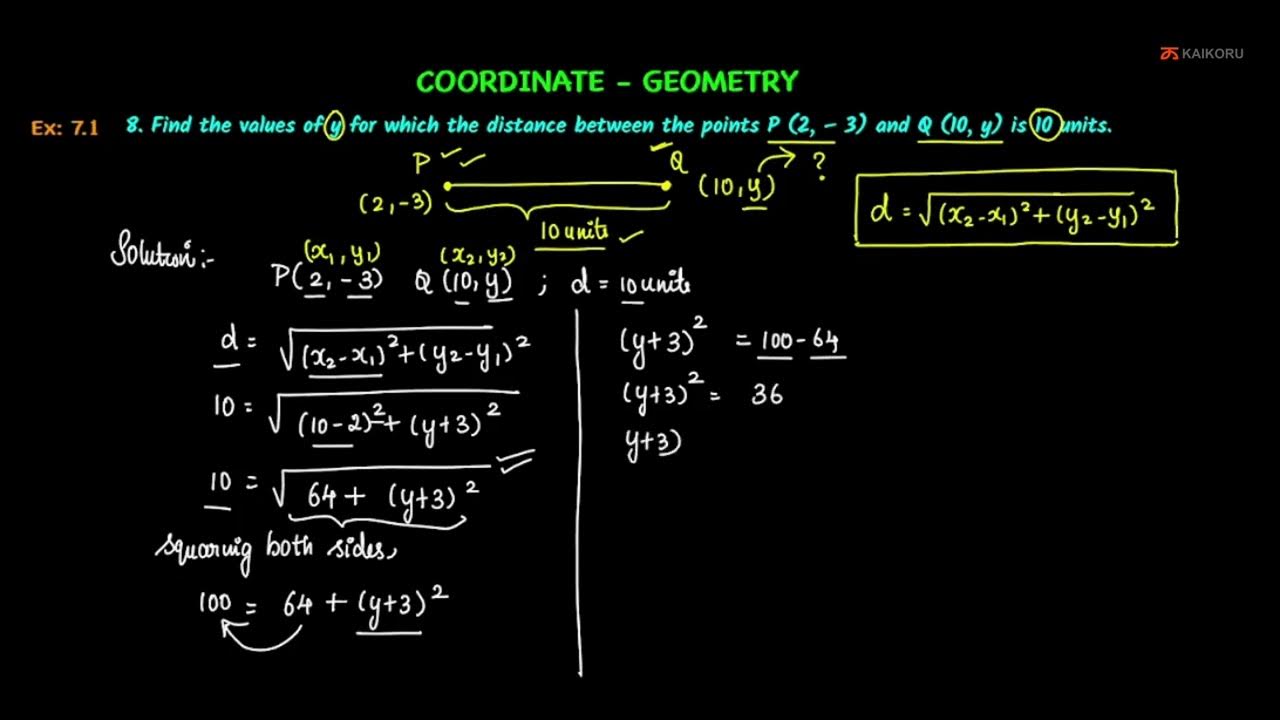 KAIKORU
COORDINATE - GEOMETRY
Ex: 7.1 8. Find the values of y for which the distance between the points P (2, - 3) and Q (10, y) is 10 units.
P Q
(2,-3) (10,y) ?
10 units
d = √(x₂-x₁)²+(y₂-y₁)²
Solution:-
(x₁,y₁) (x₂,y₂)
P(2,-3) Q (10,y) ; d = 10 units
d = √(x₂-x₁)²+(y₂-y₁)²
10 = √(10-2)²+(y+3)²
10 = √64+ (y+3)²
squaring both sides,
100 = 64 + (y+3)²
(y+3)² = 100-64
(y+3)² = 36
y+3)